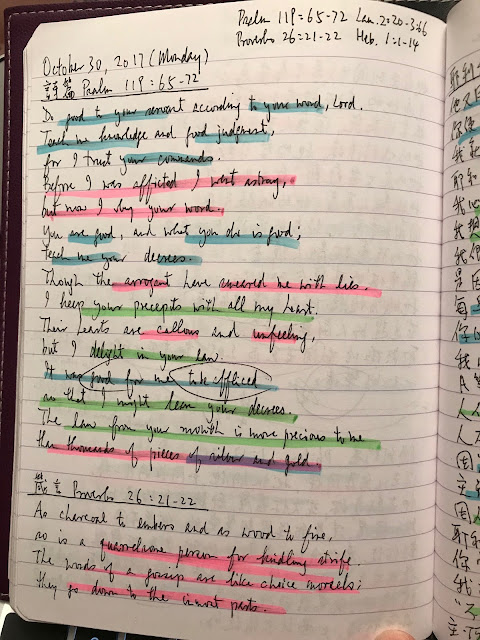 Psalm 119:65-72 Lam. 2:20-3:66
Proverbs 26:21-22 Heb. 1:1-14
October 30, 2017 (Monday)
詩篇 Psalm 119:65-72
Do good to your servant according to your word, Lord.
Teach me knowledge and good judgment,
for I trust your commands.
Before I was afflicted I went astray,
but now I obey your word.
You are good, and what you do is good;
teach me your decrees.
Though the arrogant have smeared me with lies.
I keep your precepts with all my heart.
Their hearts are callous and unfeeling,
but I delight in your law.
It was good for me to be afflicted
so that I might learn your decrees.
The law from your mouth is more precious to me
than thousands of pieces of silver and gold.
箴言 Proverbs 26:21-22
As charcoal to embers and as wood to fire,
so is a quarrelsome person for kindling strife
The words of a gossip are like choice morsels;
they go down to the inmost parts.
耶利
我
耶和
我心
我
我們
是
每
我
人
人
主
耶和
你
我
主